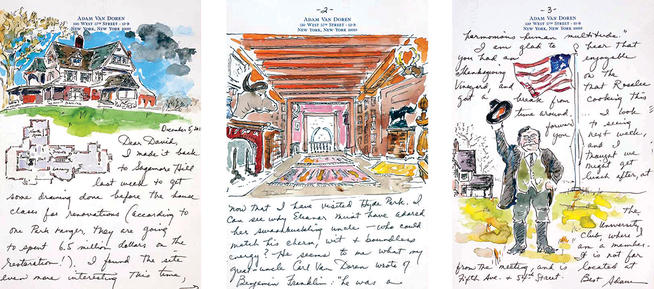 ADAM VAN DOREN
130 WEST 57TH STREET · 12-B
NEW YORK, NEW YORK 10019
December 5, 201
Dear David,
I made it back
to Sagamore Hill
last week to get
some drawing done before the house
closes for renovations (according to
one Park ranger, they are going
to spend 6.5 million dollars on the
restoration!). I found the site
even more interesting this time,
-2-
ADAM VAN DOREN
130 WEST 57TH STREET · 12-B
NEW YORK, NEW YORK 10019
now that I have visited Hyde Park. I
can see why Eleanor must have adored
her swashbuckling uncle – who could
match his charm, wit & boundless
energy? He seems to me what my
great-uncle Carl Van Doren wrote of
Benjamin Franklin: "he was a
-3-
ADAM VAN DOREN
130 WEST 57TH STREET · 12-B
NEW YORK, NEW YORK 10019
harmonious human multitude."
I am glad to hear that
you had an enjoyable
Thanksgiving on the
Vineyard, and that Rosalee
got a break from cooking this
time around. I look
forward to seeing
you next week,
and I
thought we
might get
lunch after, at
The
University
Club, where I
am a member.
It is not far
from the meeting, and is located at
Fifth Ave. & 54th Street.
Best Adam